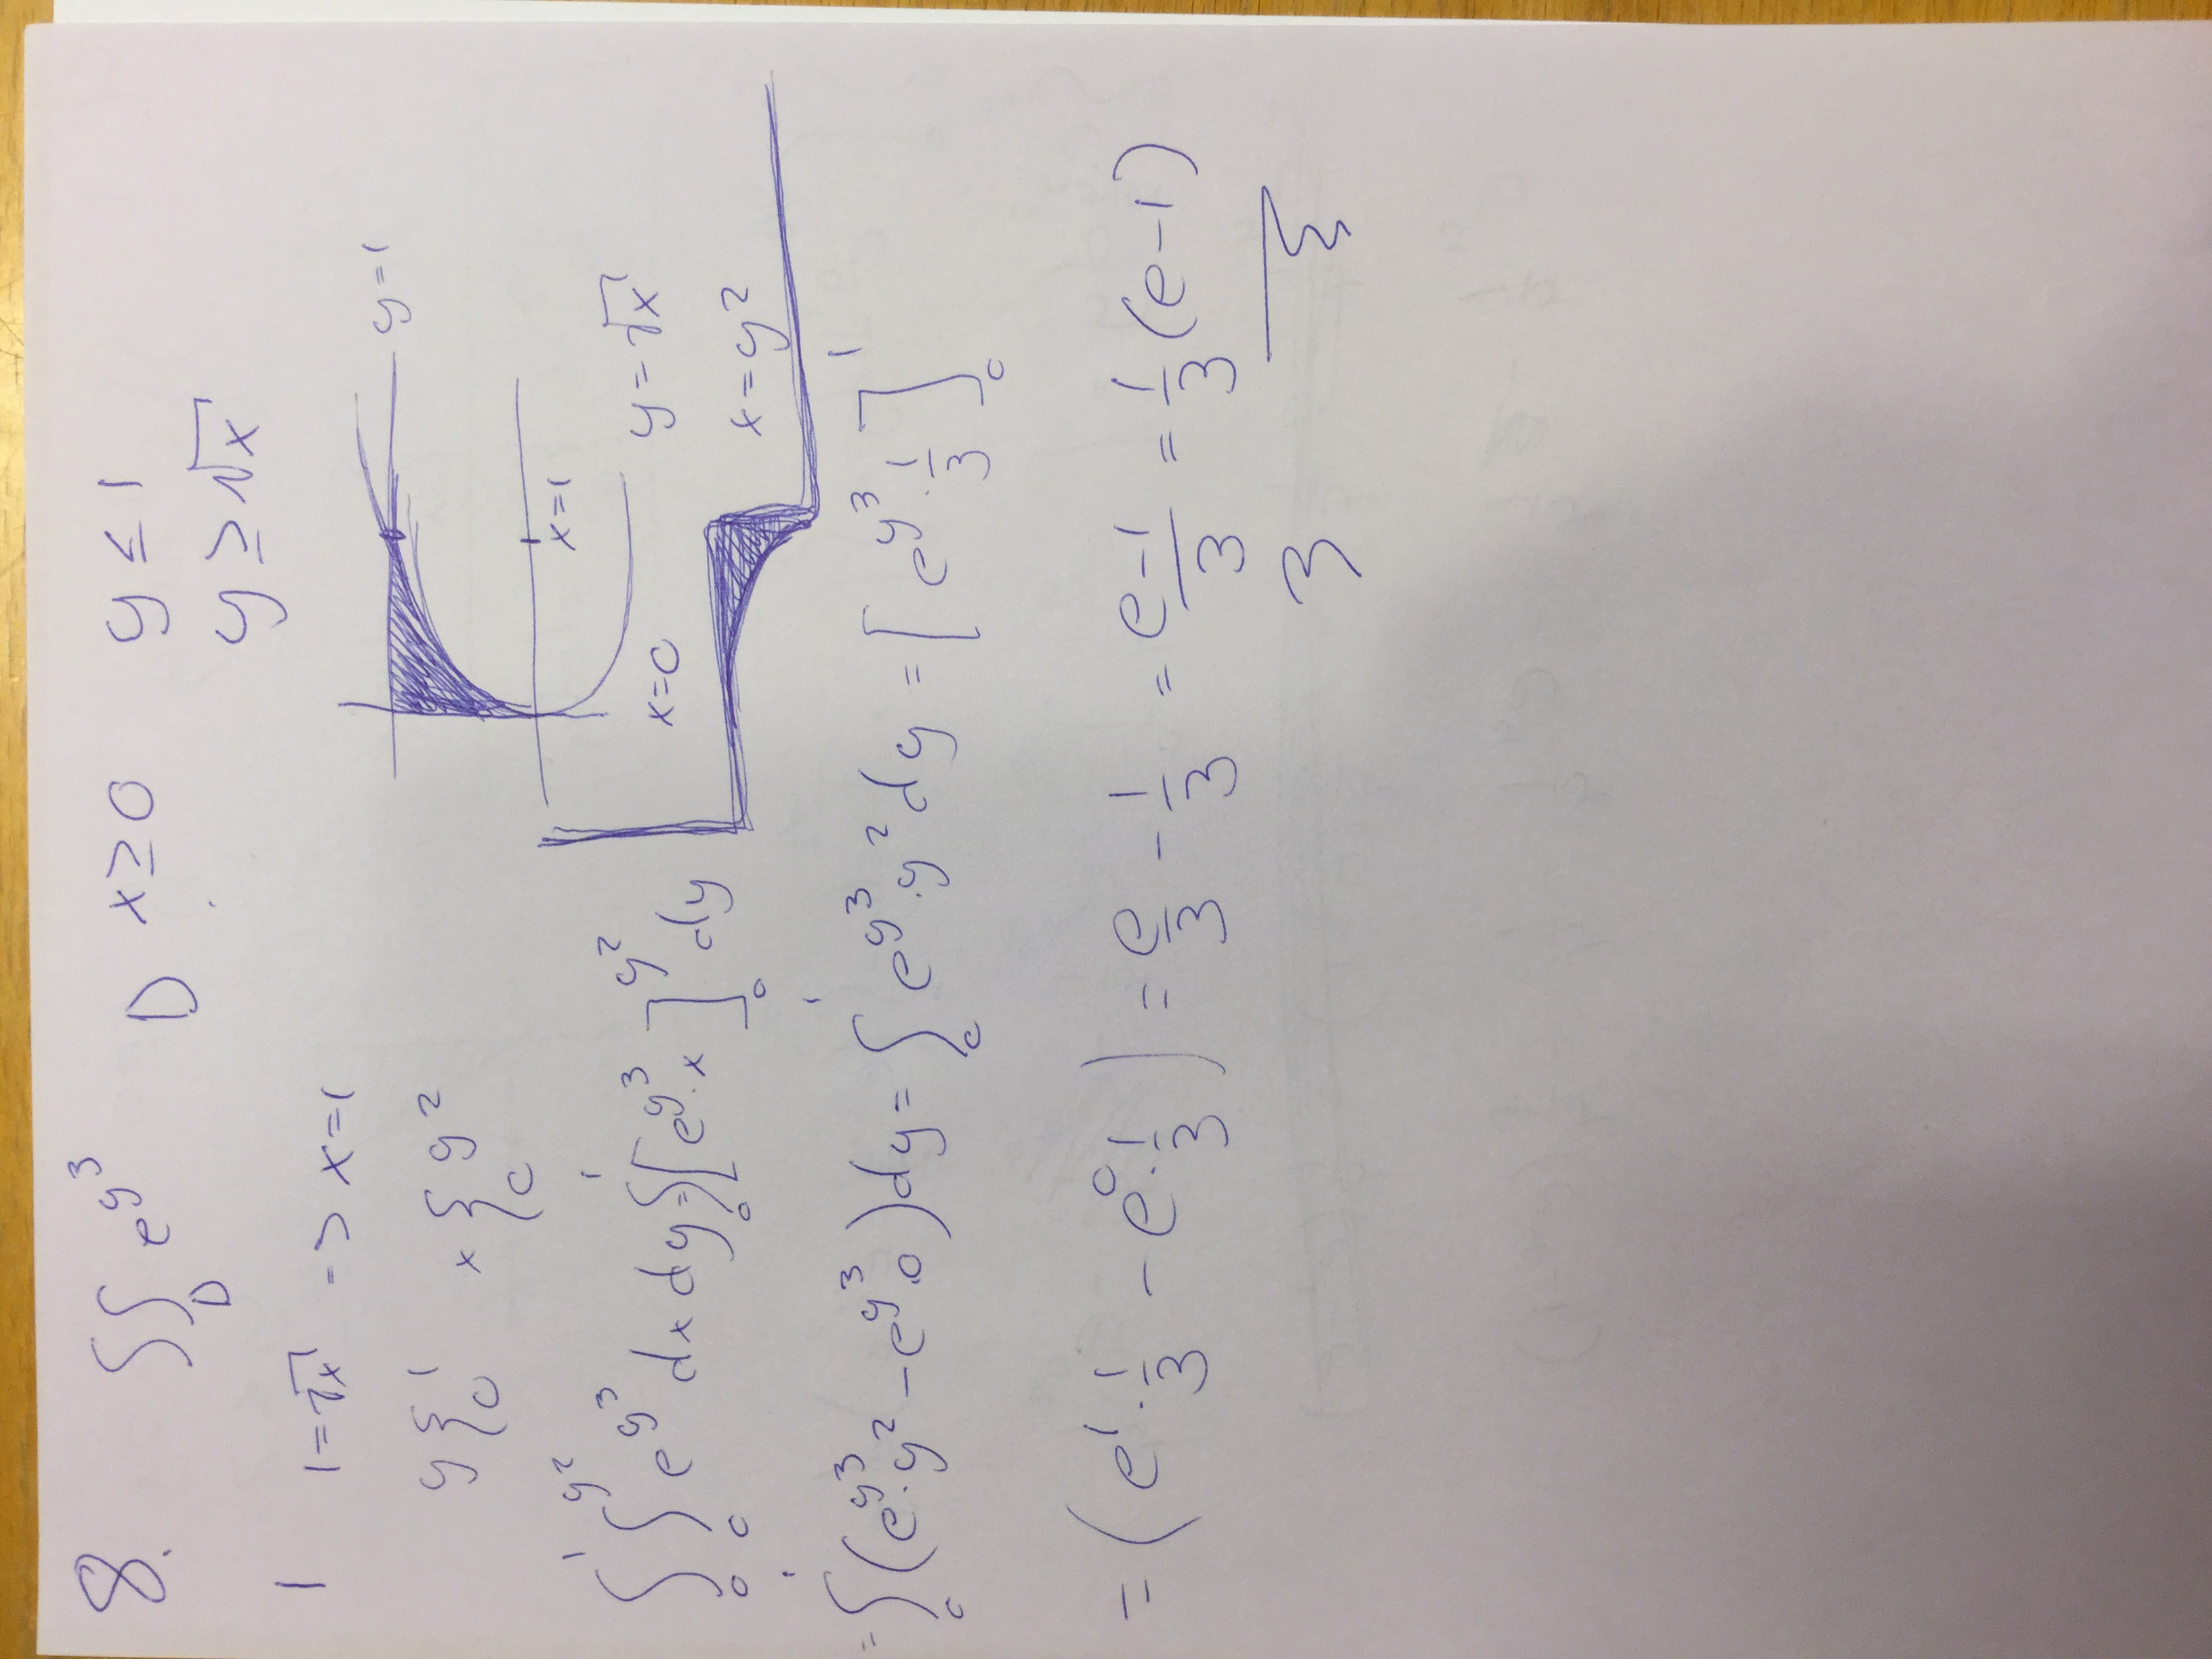 8. ∫∫_D e^{y^3} D x ≥ 0 y ≤ 1
y ≥ √x
1 1 = √x -> x = 1
y = 1
y { 1 0 x { y^2 0
x = 1
∫_0^1 ∫_0^{y^2} e^{y^3} dx dy = ∫_0^1 [e^{y^3} · x]_0^{y^2} dy
x = 0 y = √x
x = y^2
= ∫_0^1 (e^{y^3} · y^2 - e^{y^3} · 0) dy = ∫_0^1 e^{y^3} · y^2 dy = [e^{y^3} · 1/3]_0^1
= (e^1 · 1/3 - e^0 · 1/3) = e/3 - 1/3 = (e-1)/3 = 1/3 (e-1)
3